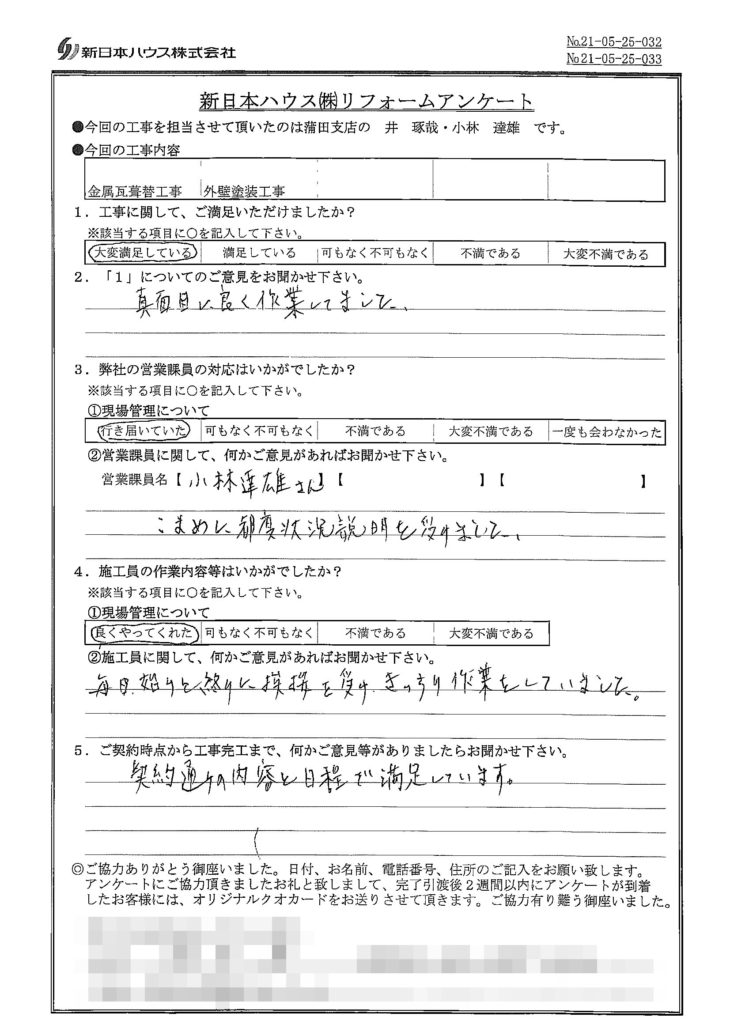 新日本ハウス株式会社
№21-05-25-032
№21-05-25-033
新日本ハウス㈱リフォームアンケート
●今回の工事を担当させて頂いたのは蒲田支店の 井 琢哉・小林 達雄 です。
●今回の工事内容
金属瓦葺替工事 外壁塗装工事
1．工事に関して、ご満足いただけましたか？
※該当する項目に○を記入して下さい。
大変満足している 満足している 可もなく不可もなく 不満である 大変不満である
2．「1」についてのご意見をお聞かせ下さい。
真面目に良く作業してました、
3．弊社の営業課員の対応はいかがでしたか？
※該当する項目に○を記入して下さい。
①現場管理について
行き届いていた 可もなく不可もなく 不満である 大変不満である 一度も会わなかった
②営業課員に関して、何かご意見があればお聞かせ下さい。
営業課員名【小林達雄さん】【 】【 】
こまめに都度状況説明を受けました、
4．施工員の作業内容等はいかがでしたか？
※該当する項目に○を記入して下さい。
①現場管理について
良くやってくれた 可もなく不可もなく 不満である 大変不満である
②施工員に関して、何かご意見があればお聞かせ下さい。
毎日始りと終りに挨拶を受け、きっちり作業をしていました。
5．ご契約時点から工事完工まで、何かご意見等がありましたらお聞かせ下さい。
契約通りの内容と日程で満足しています。
◎ご協力ありがとう御座いました。日付、お名前、電話番号、住所のご記入をお願い致します。
アンケートにご協力頂きましたお礼と致しまして、完了引渡後２週間以内にアンケートが到着
したお客様には、オリジナルクオカードをお送りさせて頂きます。ご協力有り難う御座いました。